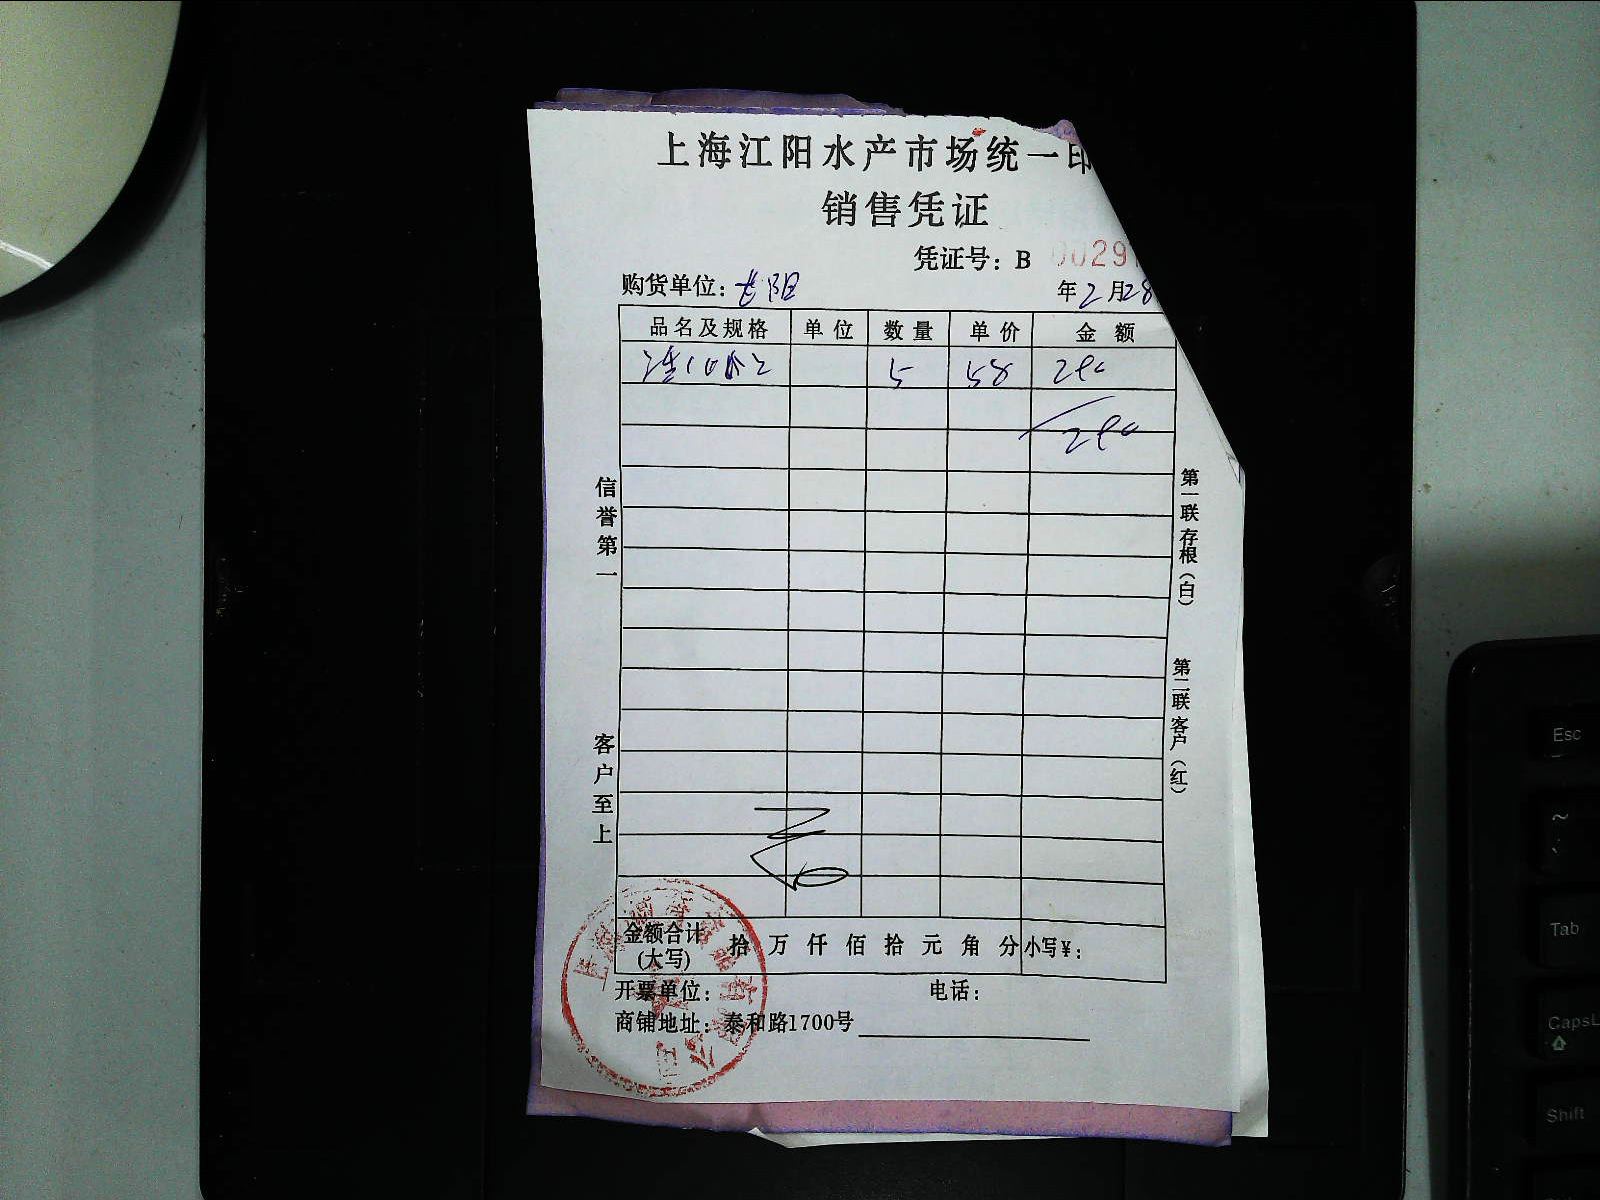 上海江阳水产市场统一印
销售凭证
凭证号：B 00291
购货单位：
年2月28
品名及规格 单位 数量 单价 金额
5 58 290
290
信誉第一
客户至上
第一联存根（白）
第二联客户（红）
金额合计（大写） 拾 万 仟 佰 拾 元 角 分 小写¥：
开票单位： 电话：
商铺地址：泰和路1700号
Esc
~
Tab
CapsL
Shift